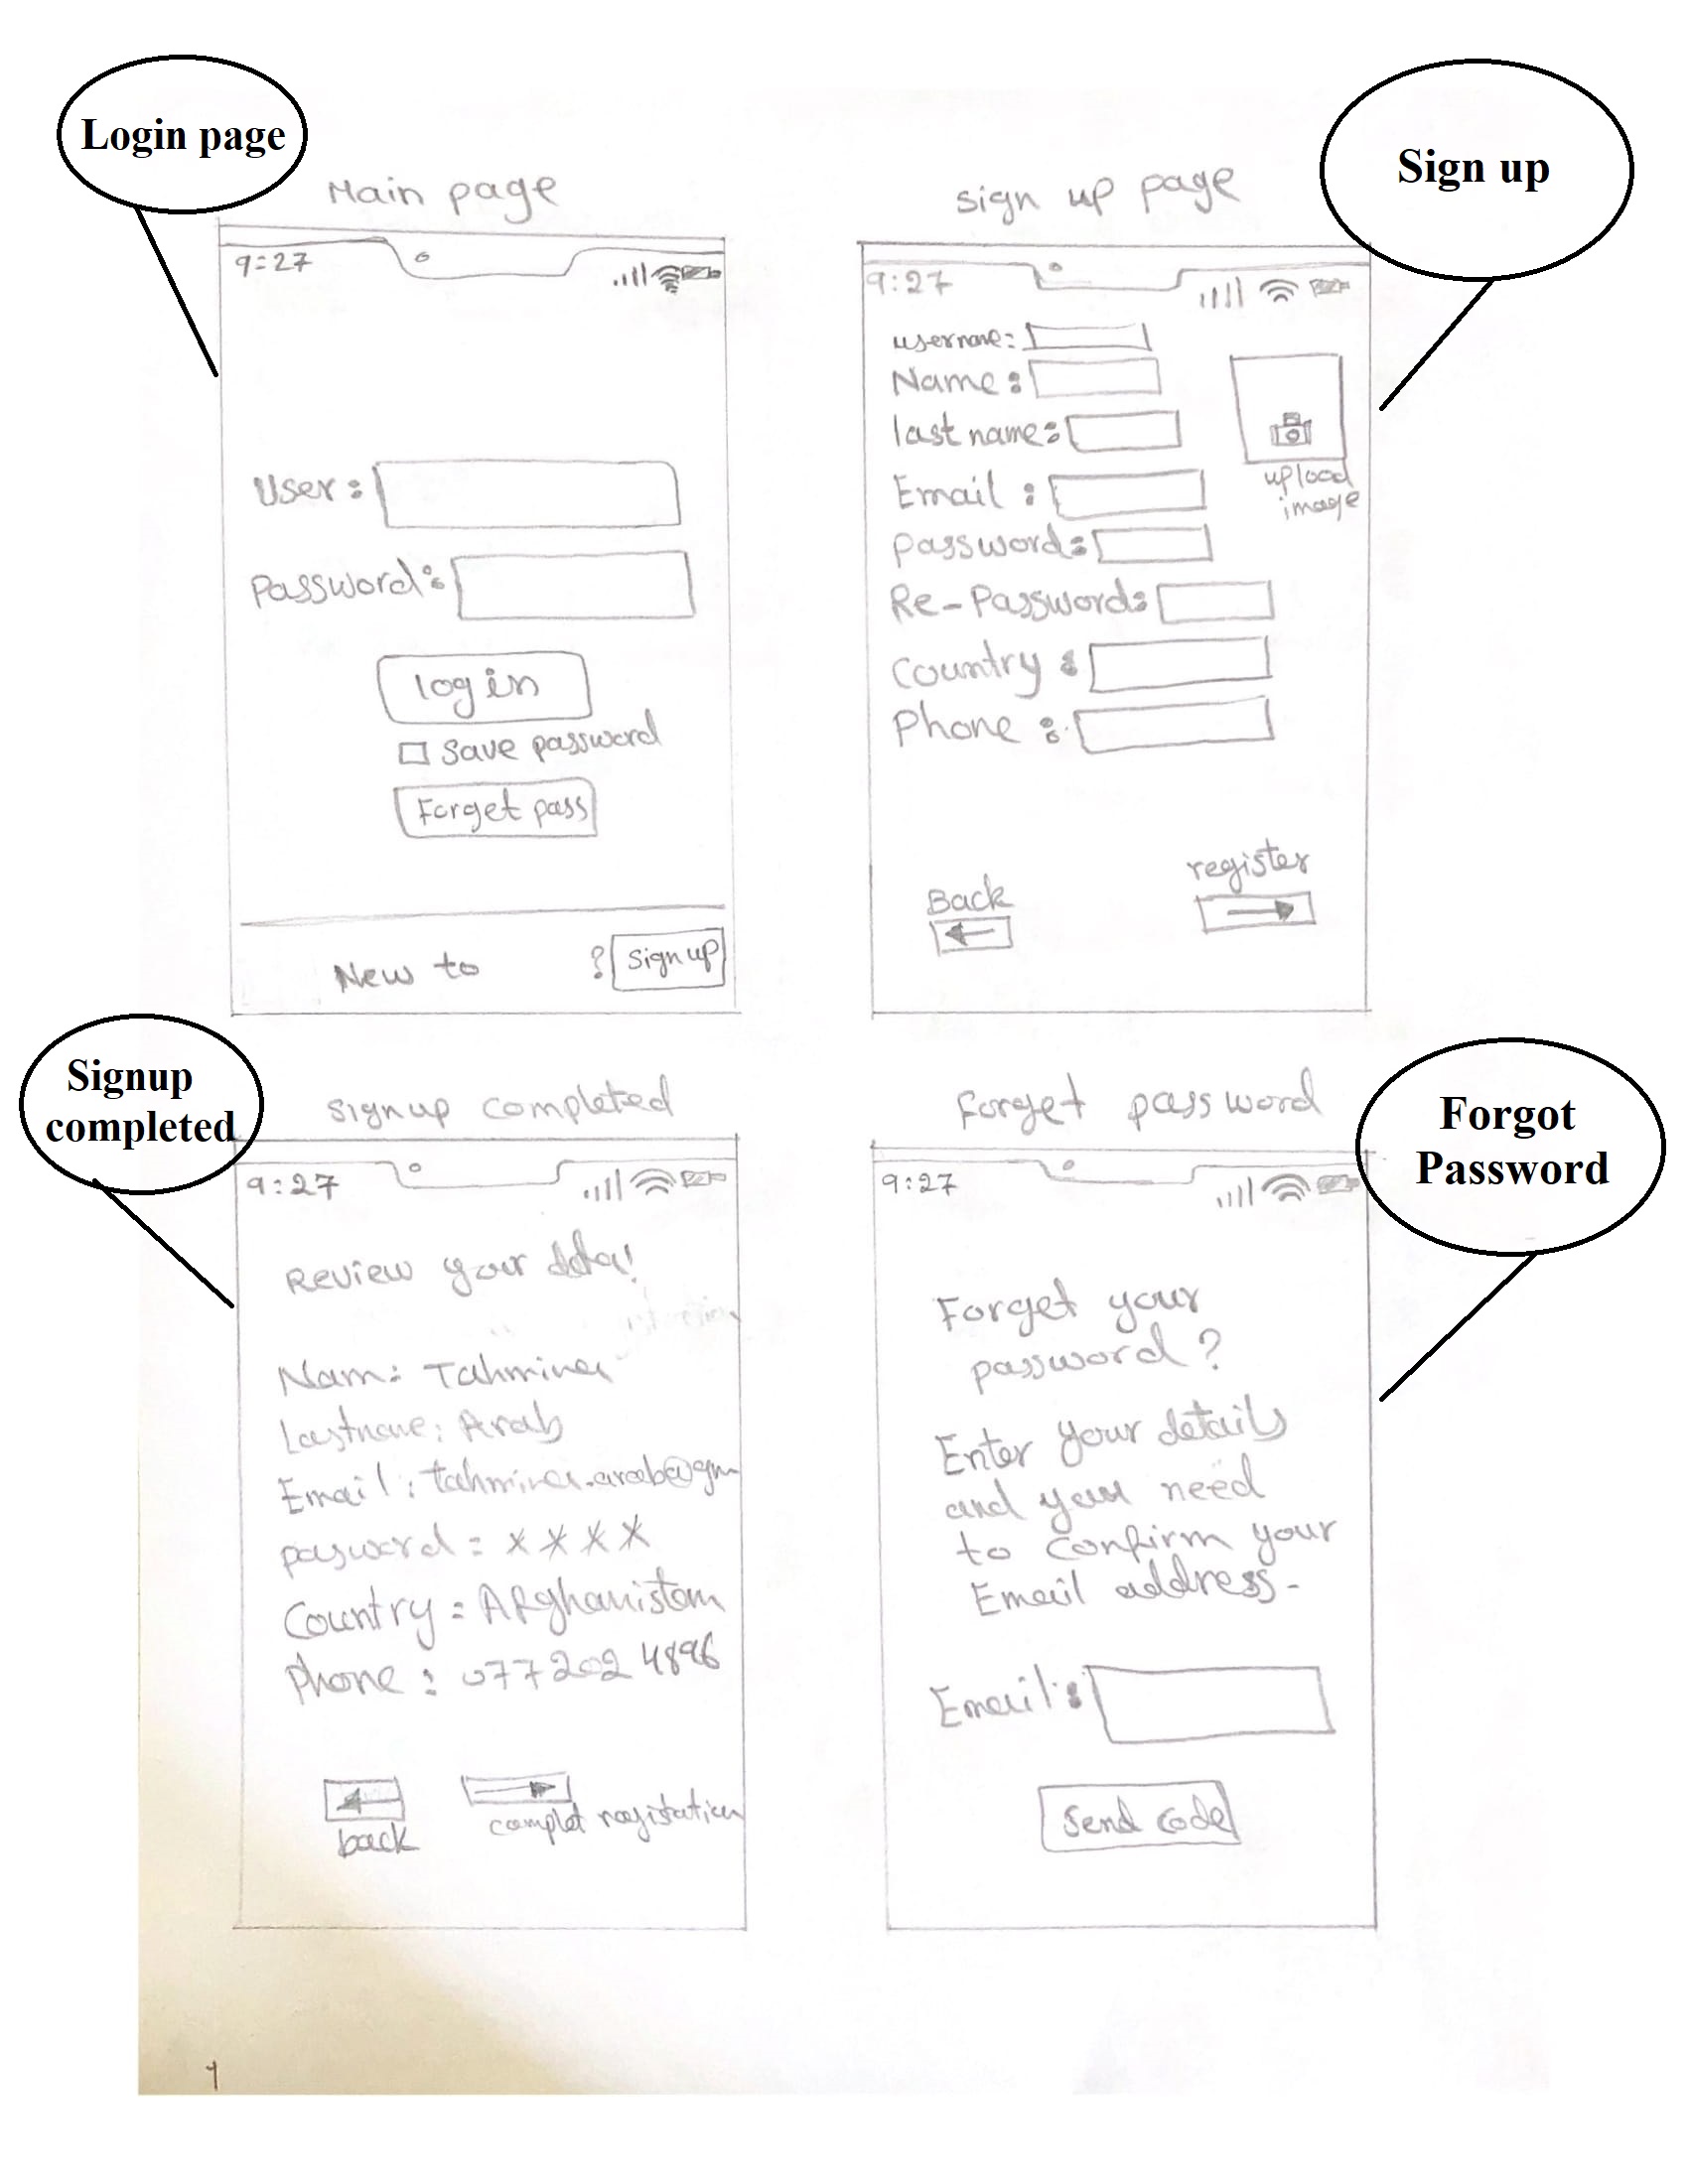 Login page
Main page
9:27
User:
Password:
log in
Save password
Forget pass
New to ? Sign up
Sign up
sign up page
9:27
username:
Name:
last name:
Email:
password:
Re-Password:
Country:
Phone:
upload
image
Back
register
Signup
completed
signup completed
9:27
Review your data!
Nam: Tahmina
Lastname: Arab
Email: tahmina.arab@gm
pasword = ****
Country = Afghanistan
phone: 077 202 4896
back
complet registation
Forgot
Password
Forget password
9:27
Forget your
password?
Enter your details
and your need
to confirm your
Email address.
Email:
Send code
1